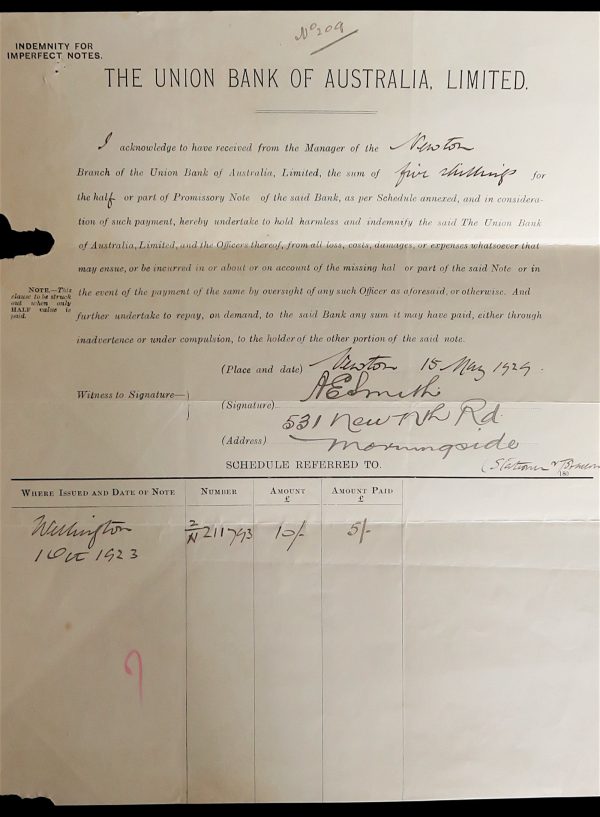 No 209
INDEMNITY FOR
IMPERFECT NOTES.
THE UNION BANK OF AUSTRALIA, LIMITED.
I acknowledge to have received from the Manager of the Newton
Branch of the Union Bank of Australia, Limited, the sum of five shillings for
the half or part of Promissory Note of the said Bank, as per Schedule annexed, and in considera-
tion of such payment, hereby undertake to hold harmless and indemnify the said The Union Bank
of Australia, Limited, and the Officers thereof, from all loss, costs, damages, or expenses whatsoever that
may ensue, or be incurred in or about or on account of the missing hal or part of the said Note or in
the event of the payment of the same by oversight of any such Officer as aforesaid, or otherwise. And
further undertake to repay, on demand, to the said Bank any sum it may have paid, either through
inadvertence or under compulsion, to the holder of the other portion of the said note.
NOTE.—This
clause to be struck
out when only
HALF value is
paid.
(Place and date) Newton 15 May 1929.
Witness to Signature—
(Signature) A E Smith
531 New Nth Rd
(Address) Morningside
SCHEDULE REFERRED TO.
180
WHERE ISSUED AND DATE OF NOTE NUMBER AMOUNT £ AMOUNT PAID £
Wellington 2/N 211793 10/- 5/-
1 Oct 1923